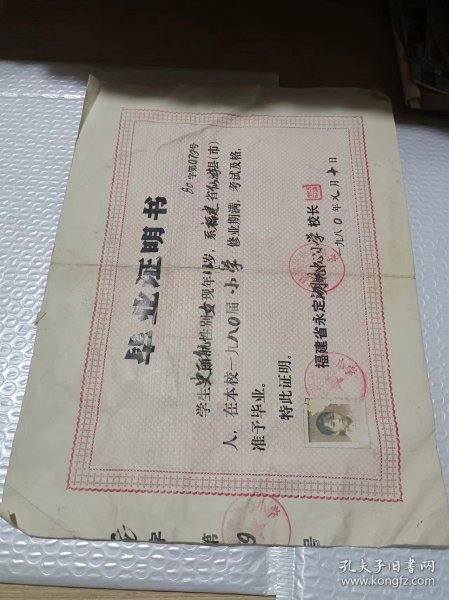 毕业证明书
80字第070号
学生史丽仙性别女现年 岁，系福建省仙游县(市)
人，在本校一九八〇届小学 修业期满，考试及格，
准予毕业。
特此证明。
福建省永定 小学 校长
一九八〇年 月十日
字 第 9 号
孔夫子旧书网
www.kongfz.com